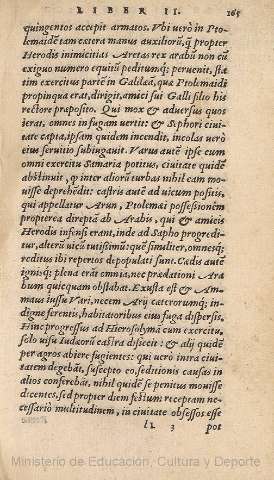 LIBER II. 165
quingentos accepit armatos. Vbi verò in Pto-
lemaidē tam extera manus auxiliorũ, q̃ propter
Herodis inimicitias Aretas rex arabũ non cũ
exiguo numero equitũ peditumq; peruenit, sta-
tim exercitus partē in Galilæā, quæ Ptolemaidi
propinqua erat, dirigit, amici sui Galli filio his
rectore præposito. Qui mox & aduersus quos
ierat, omnes in fugam vertit: & Sephori ciui-
tate capta, ipsam quidem incendit, incolas verò
eius seruitio subiugauit. Varus autē ipse cum
omni exercitu Samaria potitus, ciuitate quidē
abstinuit, q̃ inter aliorũ turbas nihil eam mo-
uisse deprehēdit: castris autē ad vicum positis,
qui appellatur Arun, Ptolemæi possessionem
propterea direptā ab Arabis, qui & amicis
Herodis infensi erant, inde ad Sapho progredi-
tur, alterũ vicũ tutißimũ: quē similiter, omnesq;
reditus ibi repertos depopulati sunt. Cædis autē
ignisq; plena erāt omnia, nec prædationi Ara
bum quicquam obstabat. Exusta est & Am-
maus iussu Vari, necem Arij cæterorumq; in-
digne ferentis, habitatoribus eius fuga dispersis.
Hinc progressus ad Hierosolymā cum exercitu,
solo visu Iudæorũ castra disiecit: & alij quidē
per agros abiere fugientes: qui verò intra ciui-
tatem degebāt, suscepto eo, seditionis causas in
alios conferebāt, nihil quidē se penitus mouisse
dicentes, sed propter diem festum receptam ne-
cessariò multitudinem, in ciuitate obsessos esse
ll 3 pot
Ministerio de Educación, Cultura y Deporte